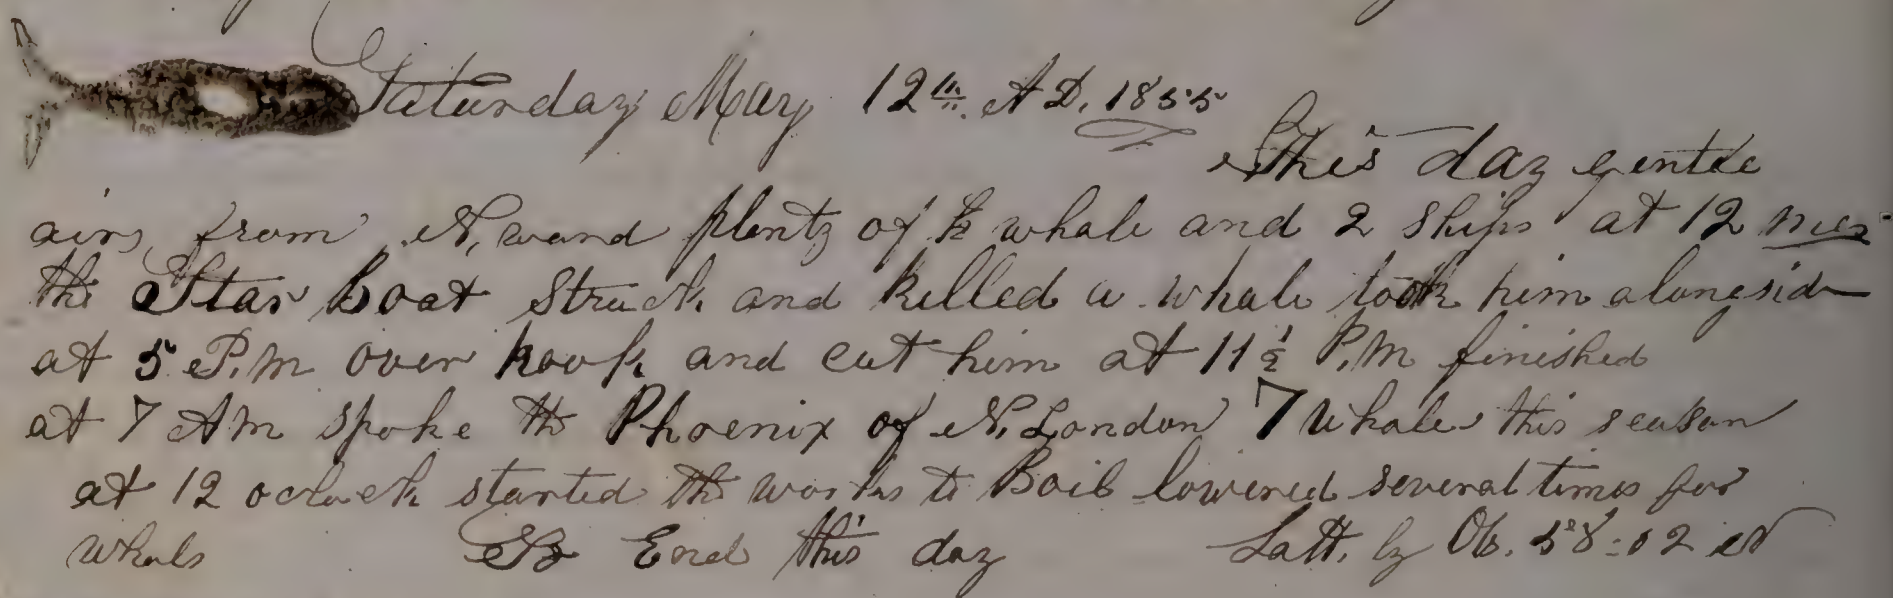 Saturday May 12th. A D, 1855
This day gentle
airs from N, ward plenty of whale and 2 Ships at 12 mer
the Star Boat Struck and killed a whale took him alongside
at 5 P.M over hook and cut him at 11 ½ P.M finished
at 7 AM spoke the Phoenix of N, London 7 Whales this season
at 12 oclock started the works to Boil lowered several times for
Whals So End this day Latt, by Ob. 58 : 02 N